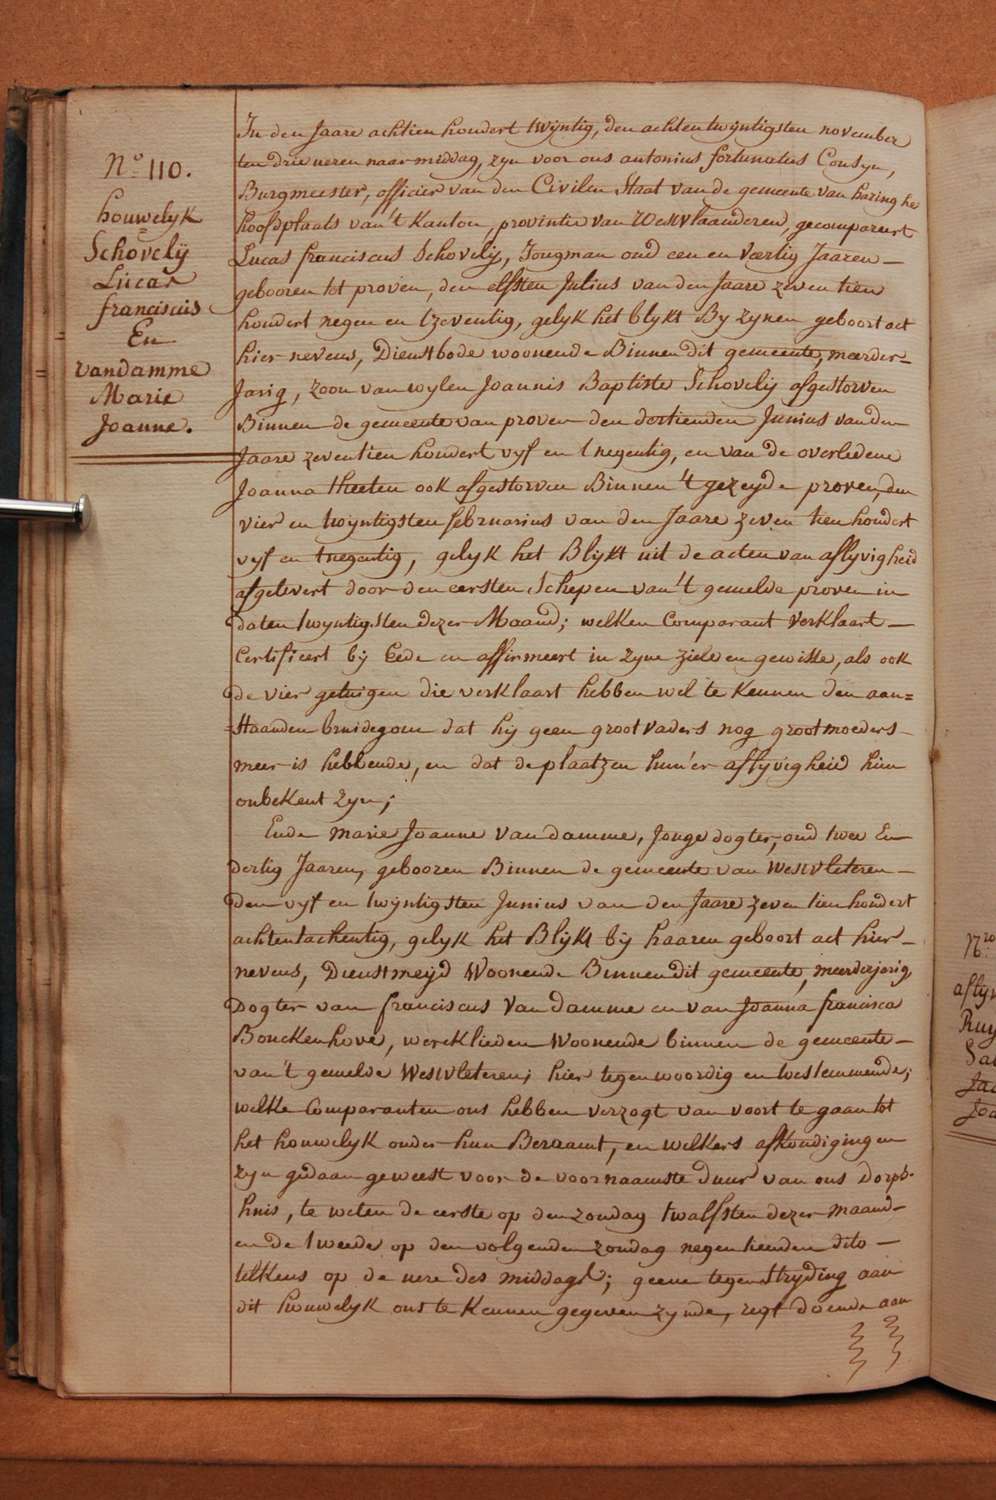 N.º 110.
houwelyk
Schovelÿ
Lucas
franciscus
En
vandamme
Marie
Joanne.
In den Jaare achtien hondert twÿntig, den achtentwÿntigsten november
ten drie ueren naar middag, zyn voor ons antonius fortunatus Cousyn,
Burgmeester, officier van den Civilen Staat van de gemeente van haringhe
hoofdplaats van 't Kanton, provintie van Westvlaanderen, gecompareert
Lucas franciscus Schovelÿ, Jongman oud een en Vœrtig Jaaren—
gebooren tot proven, den elfsten Julius van den Jaare zeven tien
hondert negen en tzeventig, gelyk het blykt By zynen geboort act
hier nevens, Dienstbode woonende Binnen dit gemeente, meerder-
Jarig, zoon van wylen Joannis Baptiste Schovelÿ afgestorven
Binnen de gemeente van proven den dertienden Junius van den
Jaare zeventien hondert vyf en tnegentig, en van de overledene
Joanna theeten ook afgestorven Binnen 't gezeyde proven, den
vier en twyntigsten februarius van den Jaare zeven tien hondert
vyf en tnegentig, gelyk het Blykt uit de acten van aflyvigheid
afgelevert door den eersten Schepen van 't gemelde proven in
daten twyntigsten dezer Maand; welken Comparant verklaart—
Certificert bÿ Eede en affirmeert in zyne ziele en gewisse, als ook
de vier getuigen die verklaart hebben wel te Kennen den aan=
=Staanden bruidegom dat hÿ geen grootvaders nog grootmoeders
meer is hebbende, en dat de plaatzen hun'er aflyvigheid hun
onbekent zyn;
Ende Marie Joanne Van damme, Jonge dogter, oud twee En
dertig Jaaren, gebooren Binnen de gemeente van Westvleteren—
den vyf en twÿntigsten Junius van den Jaare zeven tien hondert
achtentachentig, gelyk het Blÿkt bÿ haaren geboort act hier—
nevens, Dienstmeÿd Woonende Binnen dit gemeente, meerderjarig
Dogter van franciscus Van damme en van Joanna francisca
Bonckenhove, wercklieden Woonende binnen de gemeente—
van 't gemelde Westvleteren; hier tegenwoordig en toestemmende;
welke Comparanten ons hebben verzogt van voort te gaan tot
het houwelyk onder hun Beraamt, en welkers afkondigingen
zyn gedaan geweest voor de voornaamste duur van ons Dorp-
huis, te weten de eerste op den zondag twalfsten dezer maand—
en de tweede op den volgenden zondag negentienden dito—
telkens op de uere des middags; geene tegenstryding aan
dit houwelyk ons te Kennen gegeven zynde, regt doende aan
N.ro
afly
Ruy
Jac
Joa